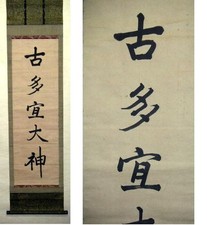 古多宜大神
古多宜大